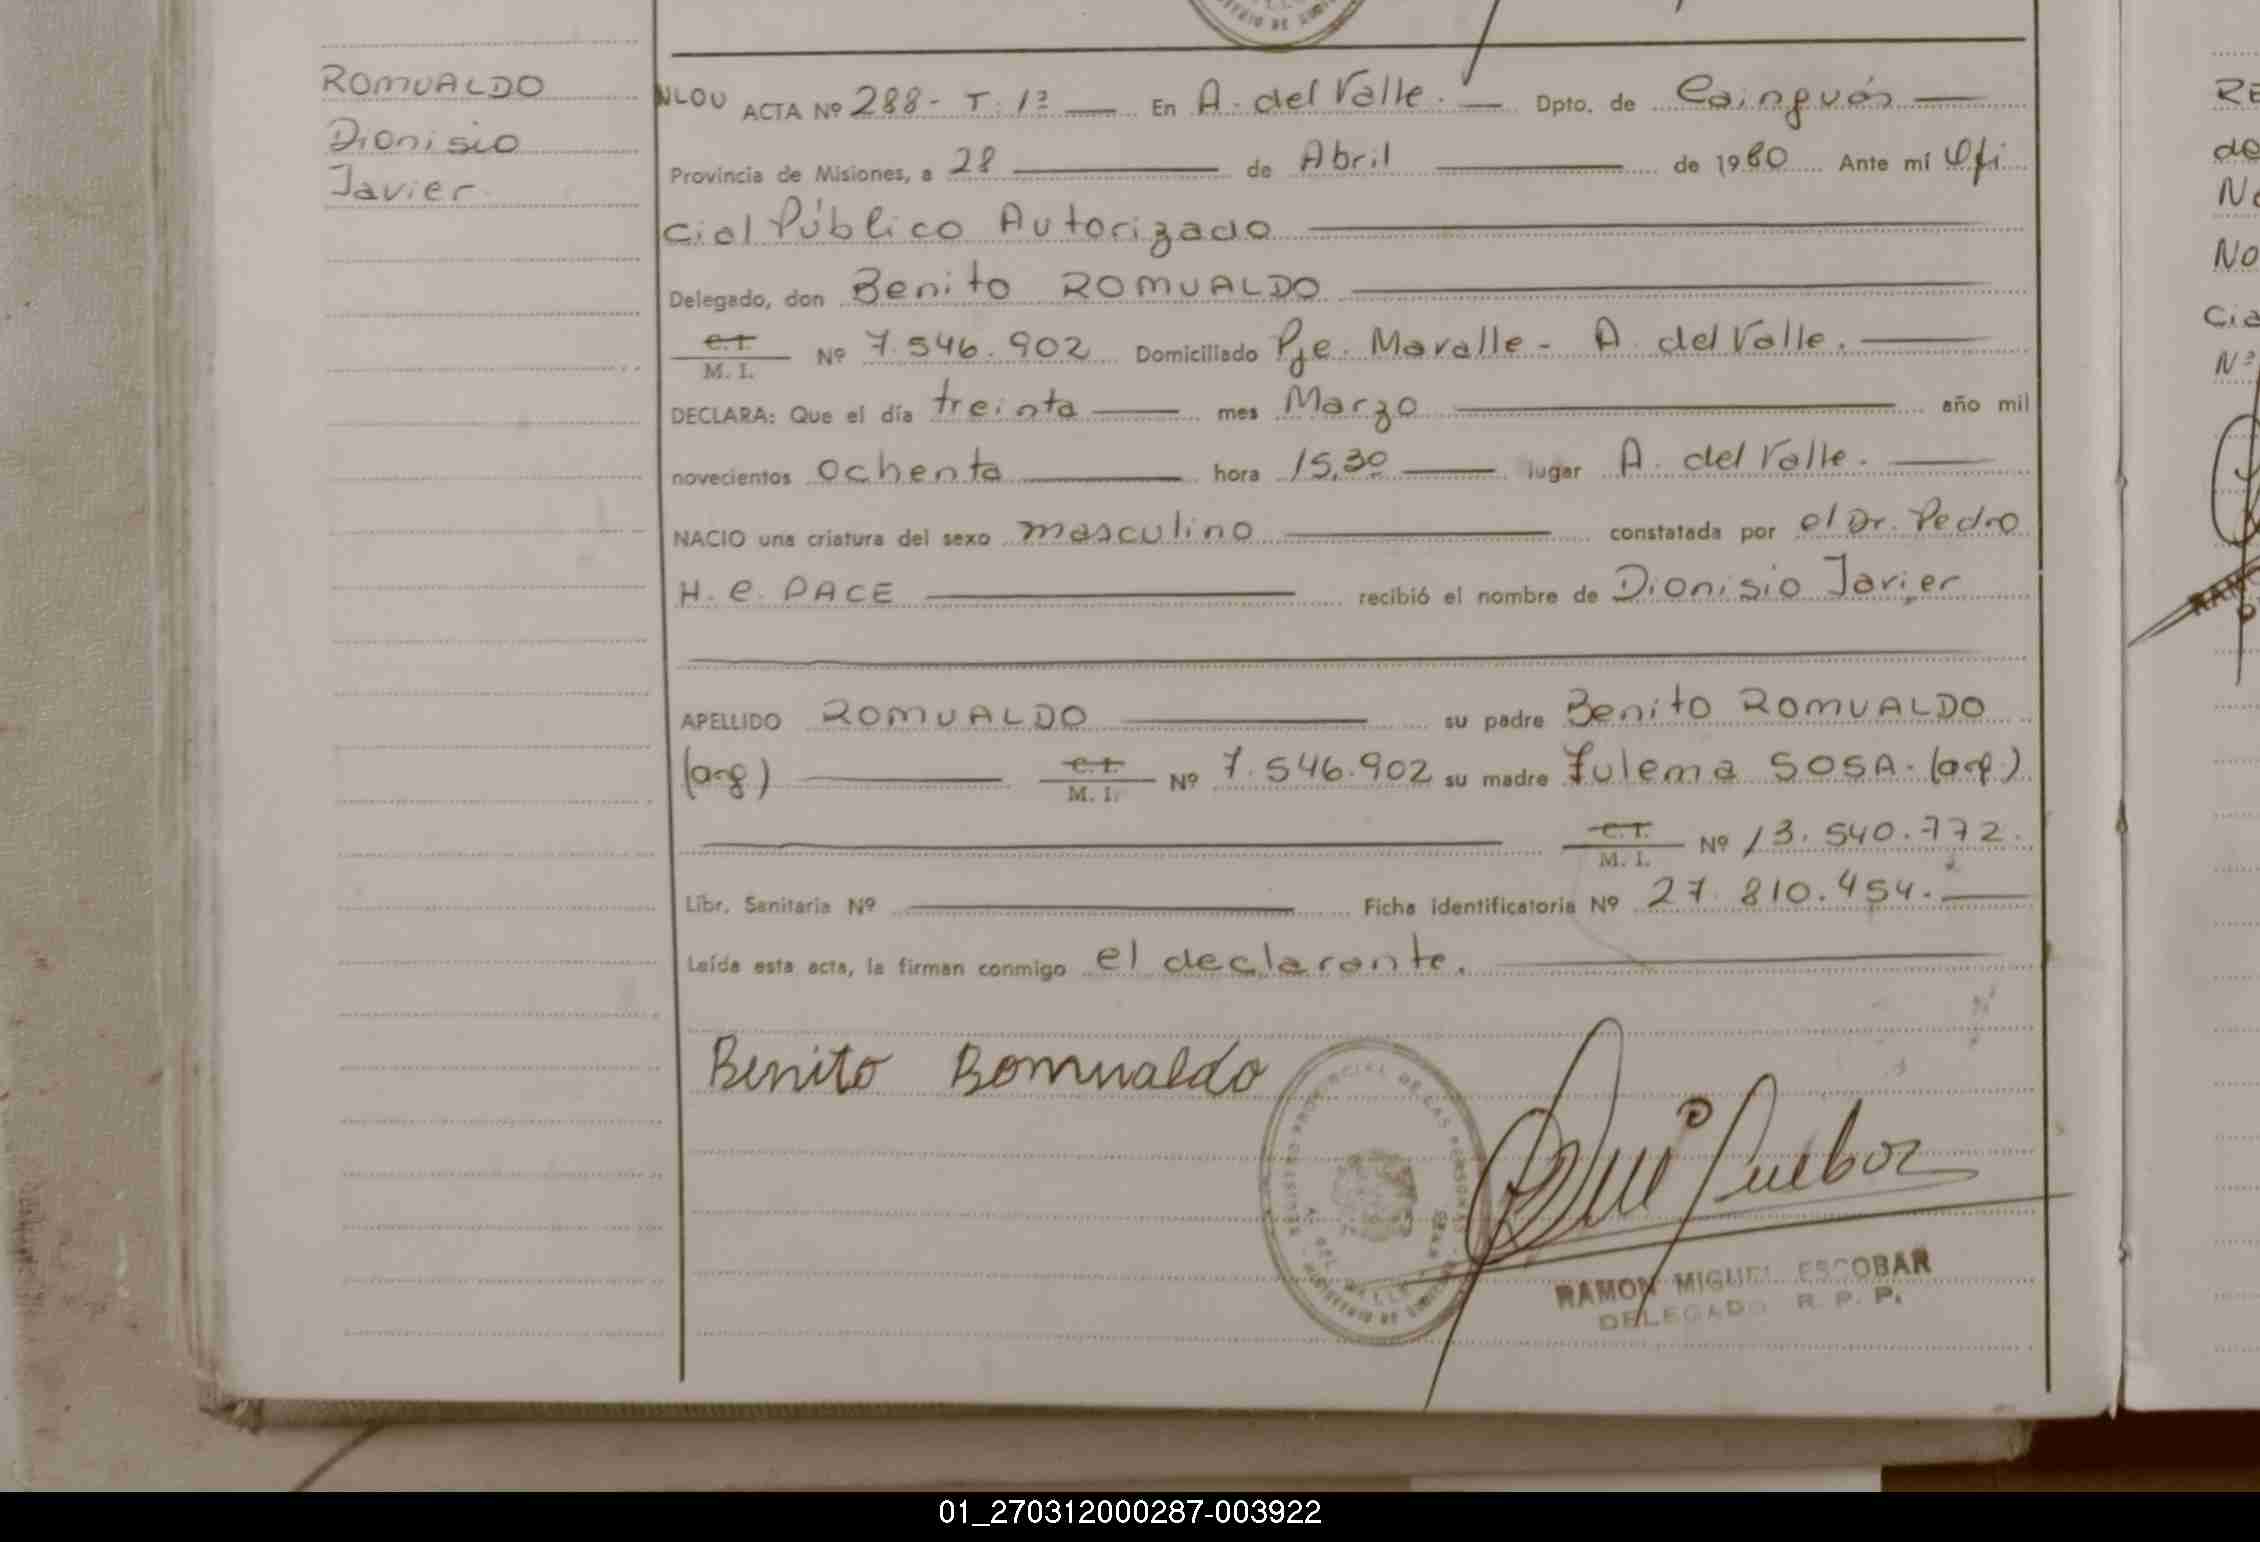 ROMUALDO
Dionisio
Javier
NLOU ACTA Nº 288- T. 1ª En A. del Valle. Dpto. de Cainguás
Provincia de Misiones, a 28 de Abril de 1980 Ante mí Ofi
cial Público Autorizado
Delegado, don Benito ROMUALDO
C.I.
M. I. Nº 7.546.902 Domiciliado Pje. Mavalle - A. del Valle.
DECLARA: Que el día treinta mes Marzo año mil
novecientos ochenta hora 15,30 lugar A. del Valle.
NACIO una criatura del sexo masculino constatada por el Dr. Pedro
H. C. PACE recibió el nombre de Dionisio Javier
APELLIDO ROMUALDO su padre Benito ROMUALDO
(arg) C.I.
M. I. Nº 7.546.902 su madre Zulema SOSA. (arg.)
C.I.
M. I. Nº 13.540.772.
Libr. Sanitaria Nº Ficha identificatoria Nº 27.810.454.
Leída esta acta, la firman conmigo el declarante.
Benito Romualdo
REGISTRO PROVINCIAL DE LAS PERSONAS
A. DEL VALLE
MINISTERIO DE
RAMON MIGUEL ESCOBAR
DELEGADO R. P. P.
01_270312000287-003922